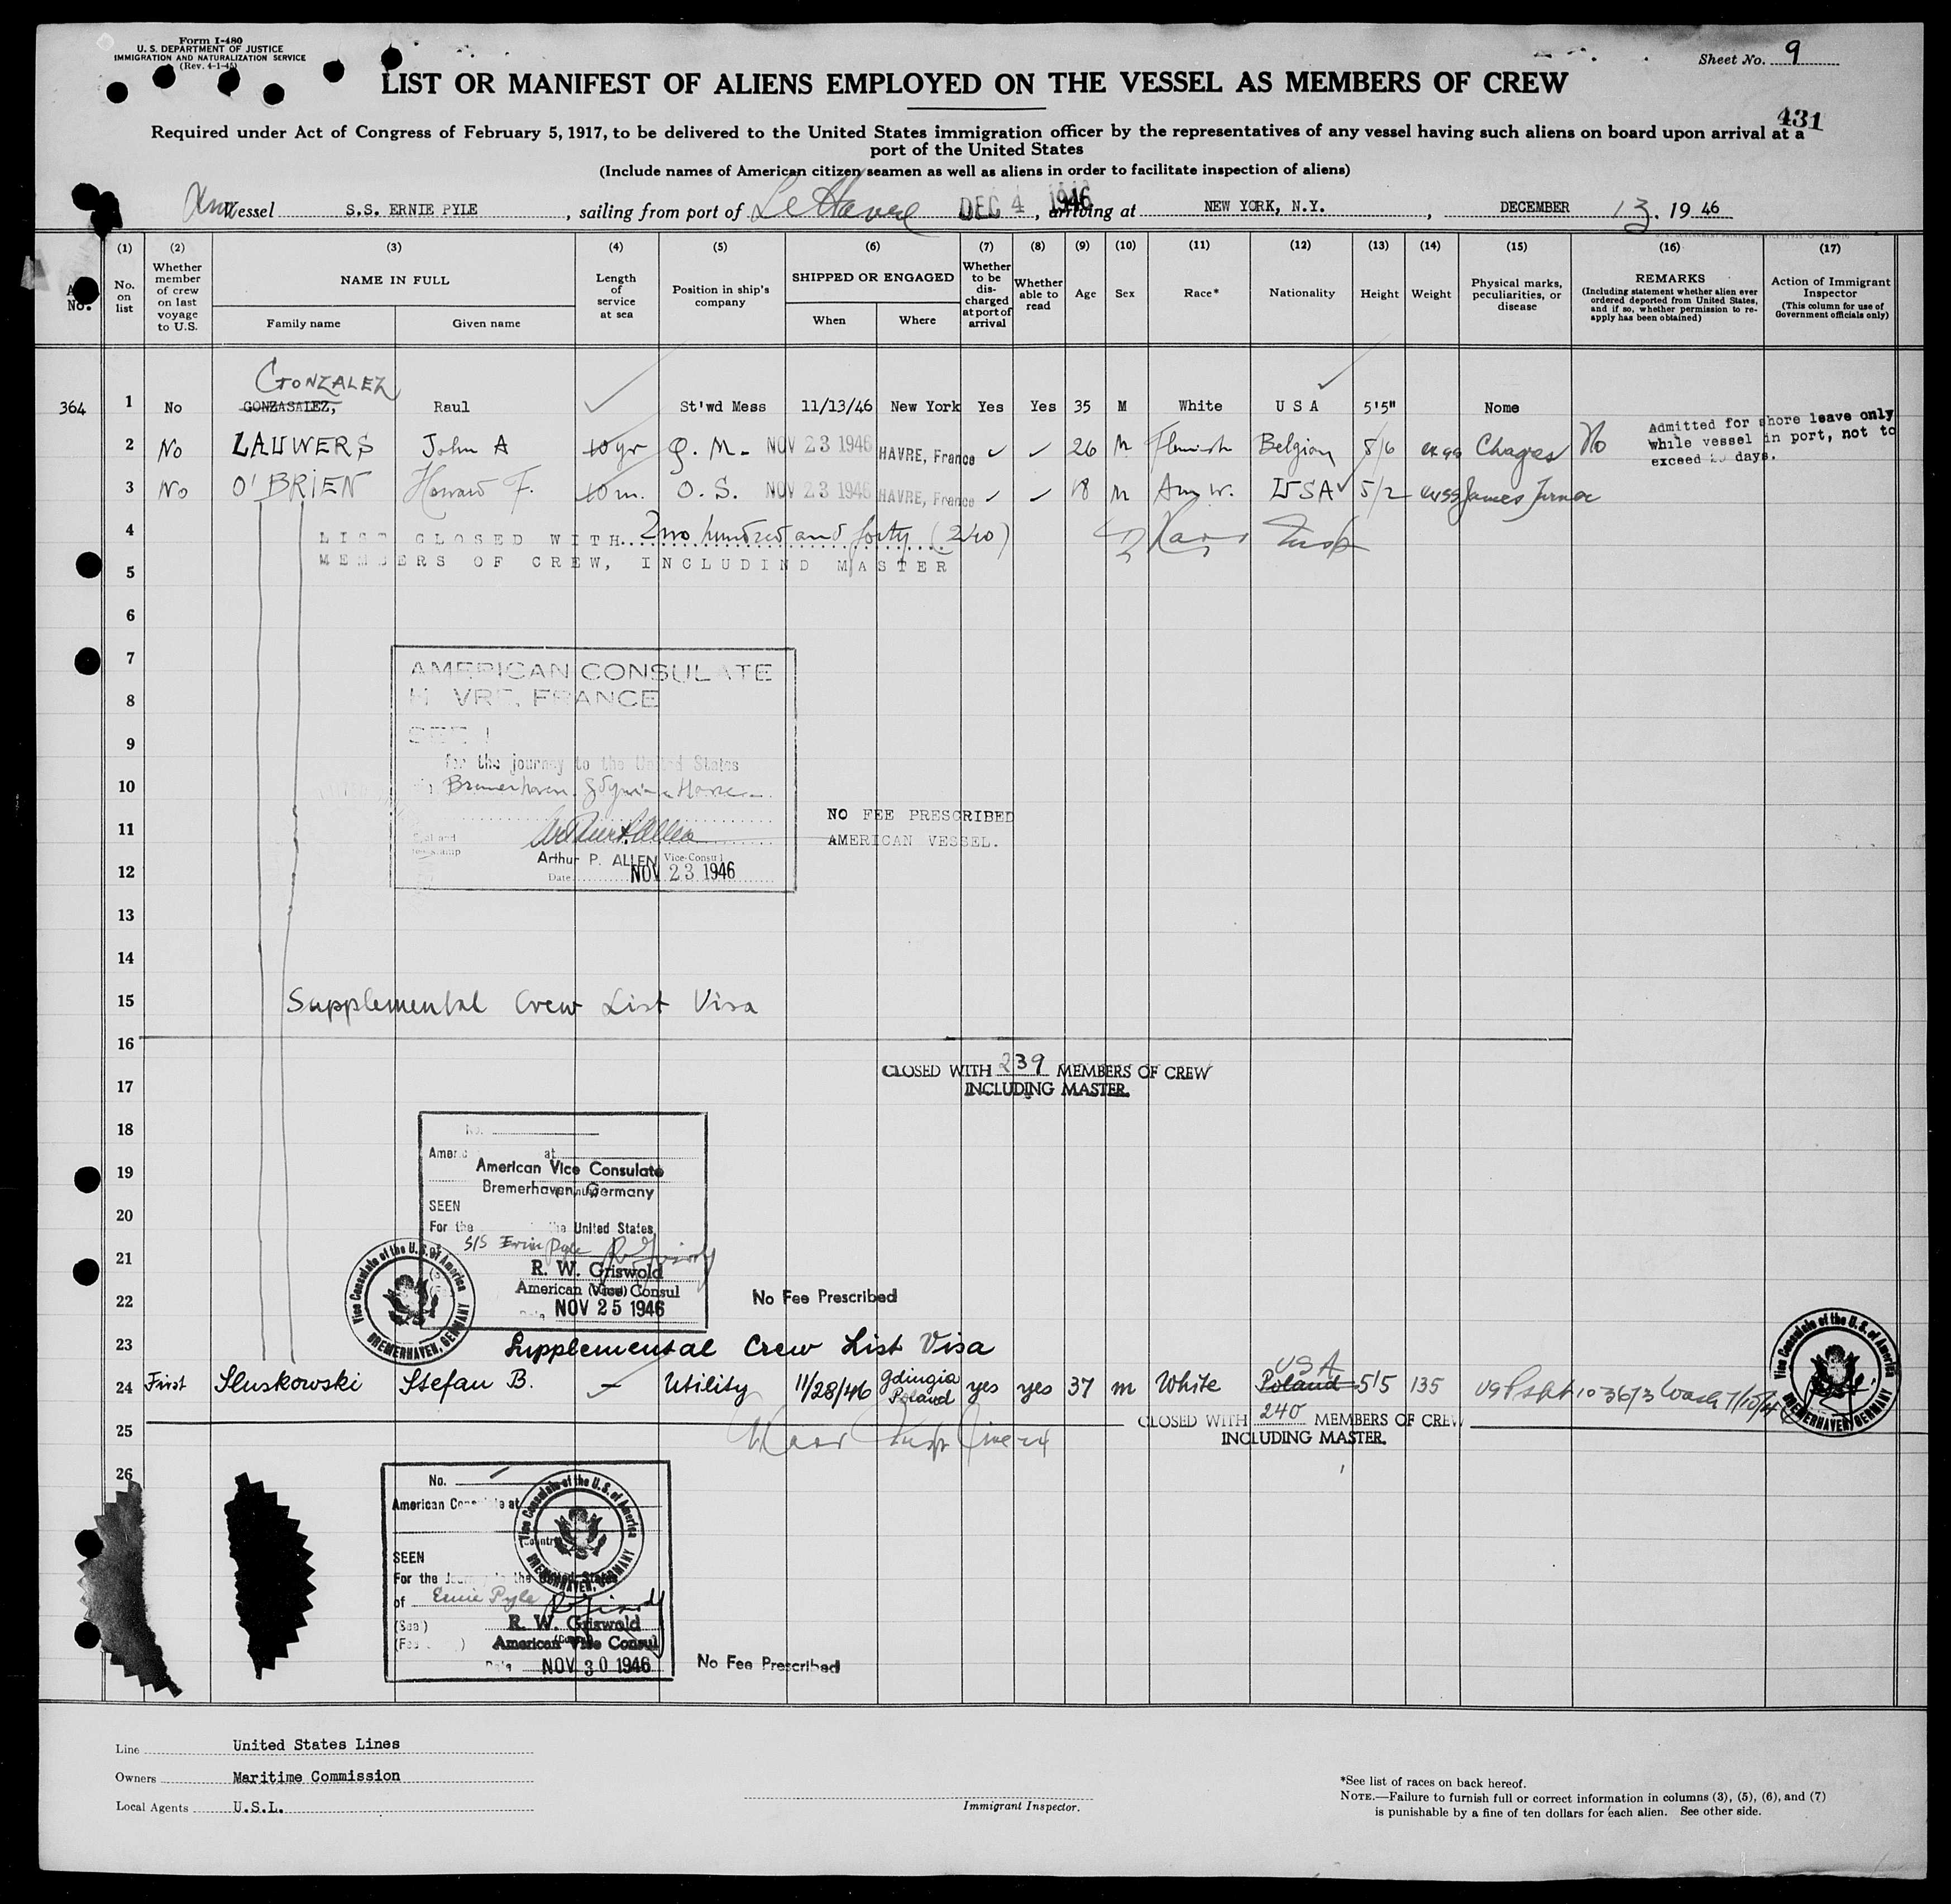 Form I-480
U. S. DEPARTMENT OF JUSTICE
IMMIGRATION AND NATURALIZATION SERVICE
(Rev. 4-1-45)
Sheet No. 9
LIST OR MANIFEST OF ALIENS EMPLOYED ON THE VESSEL AS MEMBERS OF CREW
431
Required under Act of Congress of February 5, 1917, to be delivered to the United States immigration officer by the representatives of any vessel having such aliens on board upon arrival at a
port of the United States
(Include names of American citizen seamen as well as aliens in order to facilitate inspection of aliens)
Vessel S.S. ERNIE PYLE, sailing from port of Le Havre DEC 4 1946, arriving at NEW YORK, N.Y., DECEMBER 13, 1946
(1) (2) (3) (4) (5) (6) (7) (8) (9) (10) (11) (12) (13) (14) (15) (16) (17)
No. on list
Whether member of crew on last voyage to U.S.
NAME IN FULL
Family name
Given name
Length of service at sea
Position in ship's company
SHIPPED OR ENGAGED
When
Where
Whether to be discharged at port of arrival
Whether able to read
Age
Sex
Race*
Nationality
Height
Weight
Physical marks, peculiarities, or disease
REMARKS
(Including statement whether alien ever ordered deported from United States, and if so, whether permission to re-apply has been obtained)
Action of Immigrant Inspector
(This column for use of Government officials only)
GONZALEZ
364 1 No GONZASALEZ, Raul St'wd Mess 11/13/46 New York Yes Yes 35 M White U S A 5'5" Nome
Admitted for shore leave only
while vessel in port, not to
exceed days.
2 No LAUWERS John A 10 yr Q. M. NOV 23 1946 HAVRE, France 26 M Flemish Belgian 5/6 No
3 No O'BRIEN Howard F. 10 m. O. S. NOV 23 1946 HAVRE, France 18 M USA 5/2 James
4 LIST CLOSED WITH Two hundred and forty (240)
5 MEMBERS OF CREW, INCLUDIND MASTER
6
7 AMERICAN CONSULATE
8 HAVRE, FRANCE
9 SEEN
for the journey to the United States
10 Bremerhaven
NO FEE PRESCRIBED
11 AMERICAN VESSEL.
Arthur P. ALLEN Vice-Consul
12 Date NOV 23 1946
13
14
15 Supplemental Crew List Visa
16
CLOSED WITH 239 MEMBERS OF CREW
17 INCLUDING MASTER.
18 No.
19 at
American Vice Consulate
Bremerhaven, Germany
20 SEEN
For the the United States
21 S/S Ernie Pyle
R. W. Griswold
22 American (Vice) Consul
No Fee Prescribed
NOV 25 1946
Vice Consulate of the U.S. of America
BREMERHAVEN, GERMANY
23 Supplemental Crew List Visa
USA
24 First Sluskowski Stefan B. — Utility 11/28/46 Gdingia Poland yes yes 37 m White Poland 5'5 135
Vice Consulate of the U.S. of America
BREMERHAVEN, GERMANY
CLOSED WITH 240 MEMBERS OF CREW
25 INCLUDING MASTER.
26
No.
American Consulate at
Vice Consulate of the U.S. of America
BREMERHAVEN, GERMANY
SEEN
For the Journey to the United States
of Ernie Pyle
(Seal) R. W. Griswold
American Vice Consul
Date NOV 30 1946
No Fee Prescribed
Line United States Lines
Owners Maritime Commission
Local Agents U.S.L.
Immigrant Inspector.
*See list of races on back hereof.
NOTE.—Failure to furnish full or correct information in columns (3), (5), (6), and (7)
is punishable by a fine of ten dollars for each alien. See other side.